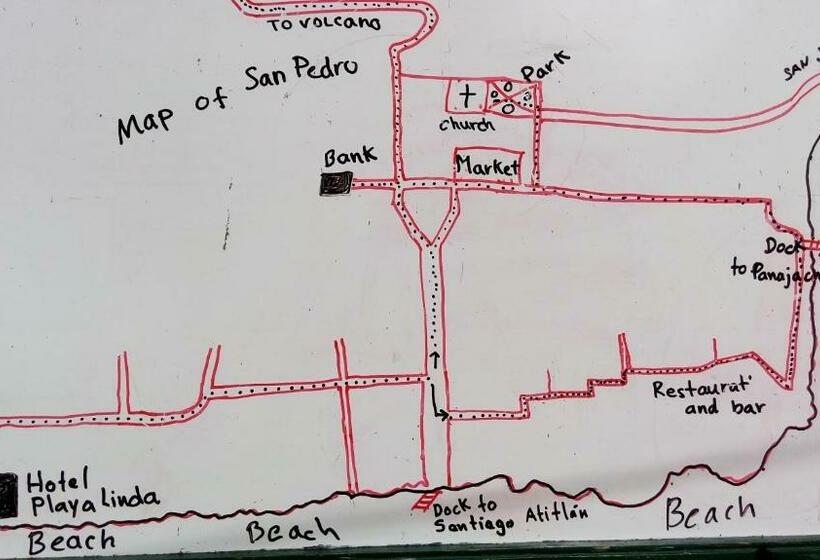 TO VOLCANO
Map of San Pedro
Park
SAN
church
Bank
Market
Dock
to Panajach
Restaurat
and bar
Hotel
Playa Linda
Dock to
Santiago Atitlán
Beach
Beach
Beach